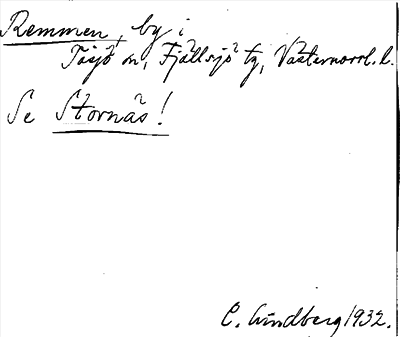 Remmen, by i
Tåsjö sn, Fjällsjö tg, Västernorrl. l.
Se Stornäs!
C. Lindberg 1932.